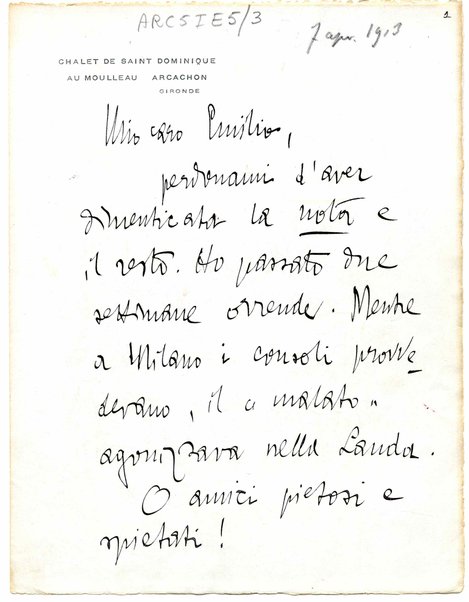 ARC5IE5/3
7 apr. 1913
1
CHALET DE SAINT DOMINIQUE
AU MOULLEAU ARCACHON
GIRONDE
Mio caro Emilio,
perdonami d'aver
dimenticata la nota e
il resto. Ho passato due
settimane orrende. Mentre
a Milano i consoli provve
devano, il « malato »
agonizzava nella Landa.
O amici pietosi e
spietati!